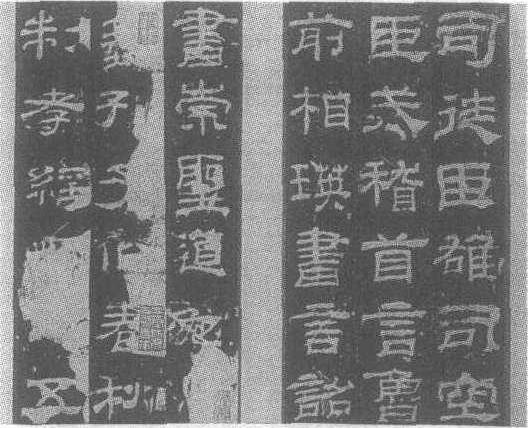 司徒臣雄司空
臣戒稽首言魯
前相瑛書言詔
書崇聖道勉
藝孔子作春秋
制孝經五